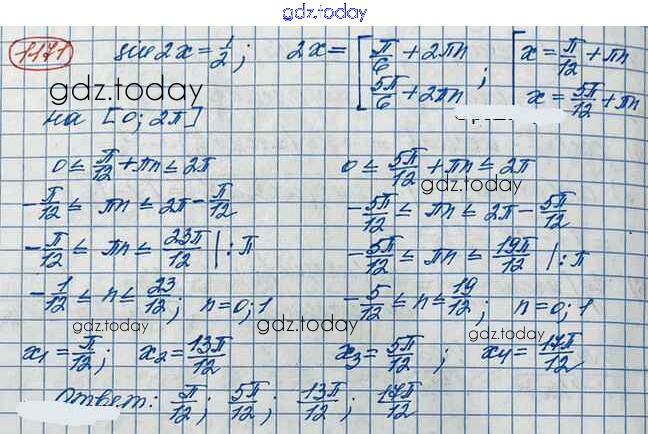 gdz.today
1171 sin2x = 1/2; 2x = [π/6 + 2πn; 5π/6 + 2πn; [x = π/12 + πn; x = 5π/12 + πn
gdz.today
на [0; 2π]
0 ≤ π/12 + πn ≤ 2π
-π/12 ≤ πn ≤ 2π - π/12
-π/12 ≤ πn ≤ 23π/12 | : π
-1/12 ≤ n ≤ 23/12; n = 0; 1
0 ≤ 5π/12 + πn ≤ 2π
gdz.today
-5π/12 ≤ πn ≤ 2π - 5π/12
-5π/12 ≤ πn ≤ 19π/12 | : π
-5/12 ≤ n ≤ 19/12; n = 0; 1
gdz.today
gdz.today
gdz.today
x₁ = π/12; x₂ = 13π/12 x₃ = 5π/12; x₄ = 17π/12
Ответ: π/12; 5π/12; 13π/12; 17π/12